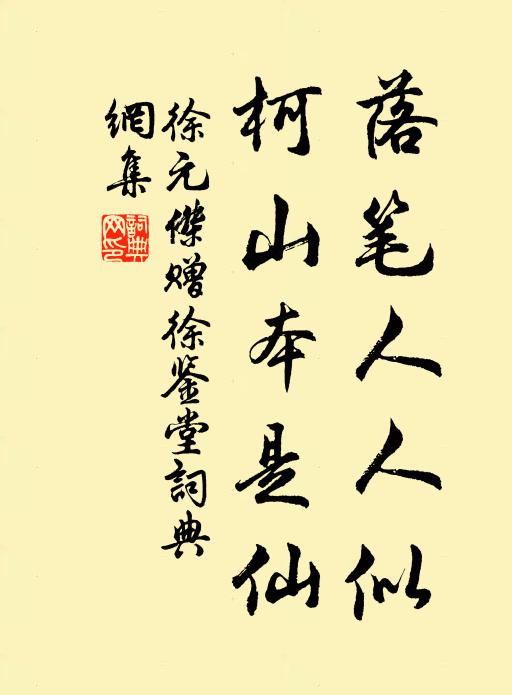 落笔人人似
柯山本是仙
徐元傑赠徐鉴堂詞典
網集
詞典
网印